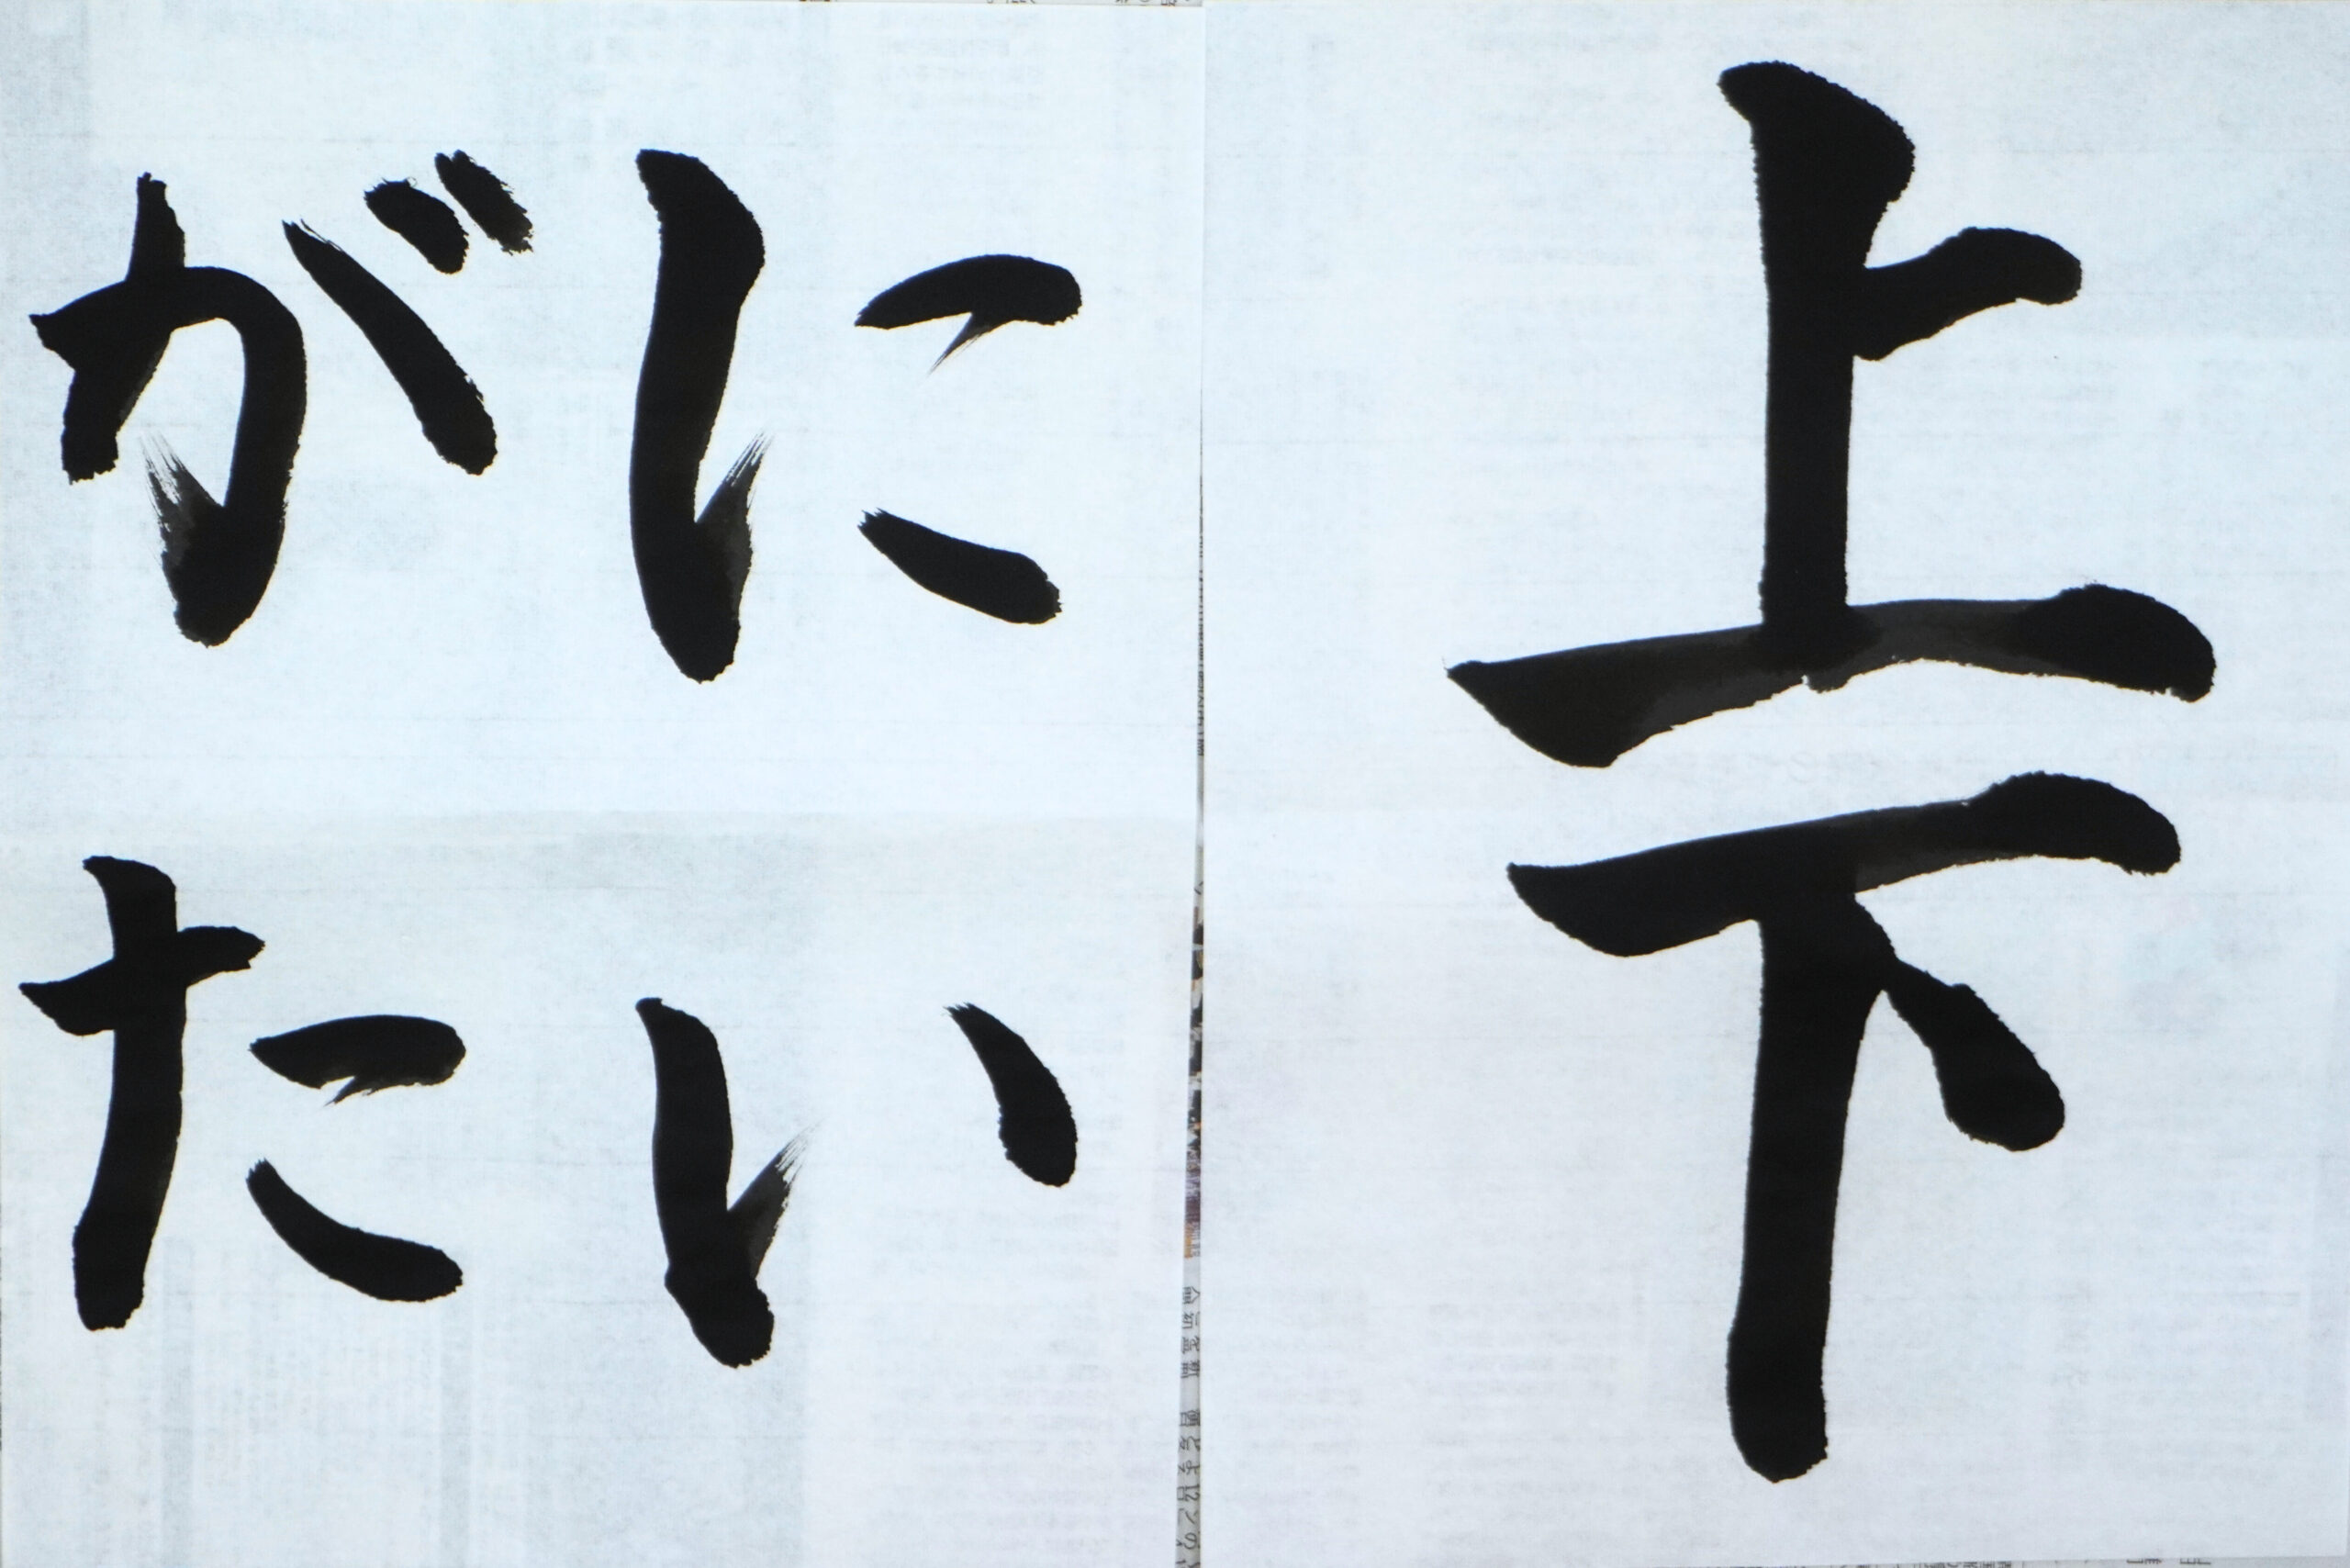 上下
にい
がた